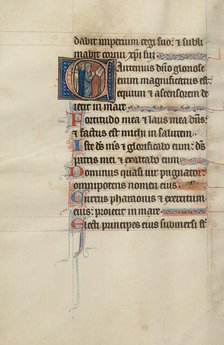 dabit imperium regi suo: et subli
mabit cornu xpi sui
Cantemus dño gloriose
enim magnificatus est:
equum et ascensorem de
iecit in mare
Fortitudo mea et laus mea dñs:
et factus est michi in salutem
Iste dñs ms et glorificabo eum: ds
patris mei et exaltabo eum
Dominus quasi uir pugnator:
omnipotens nomen eius
Currus pharaonis et exercitum
eius: proiecit in mare
Electi principes eius submersi st